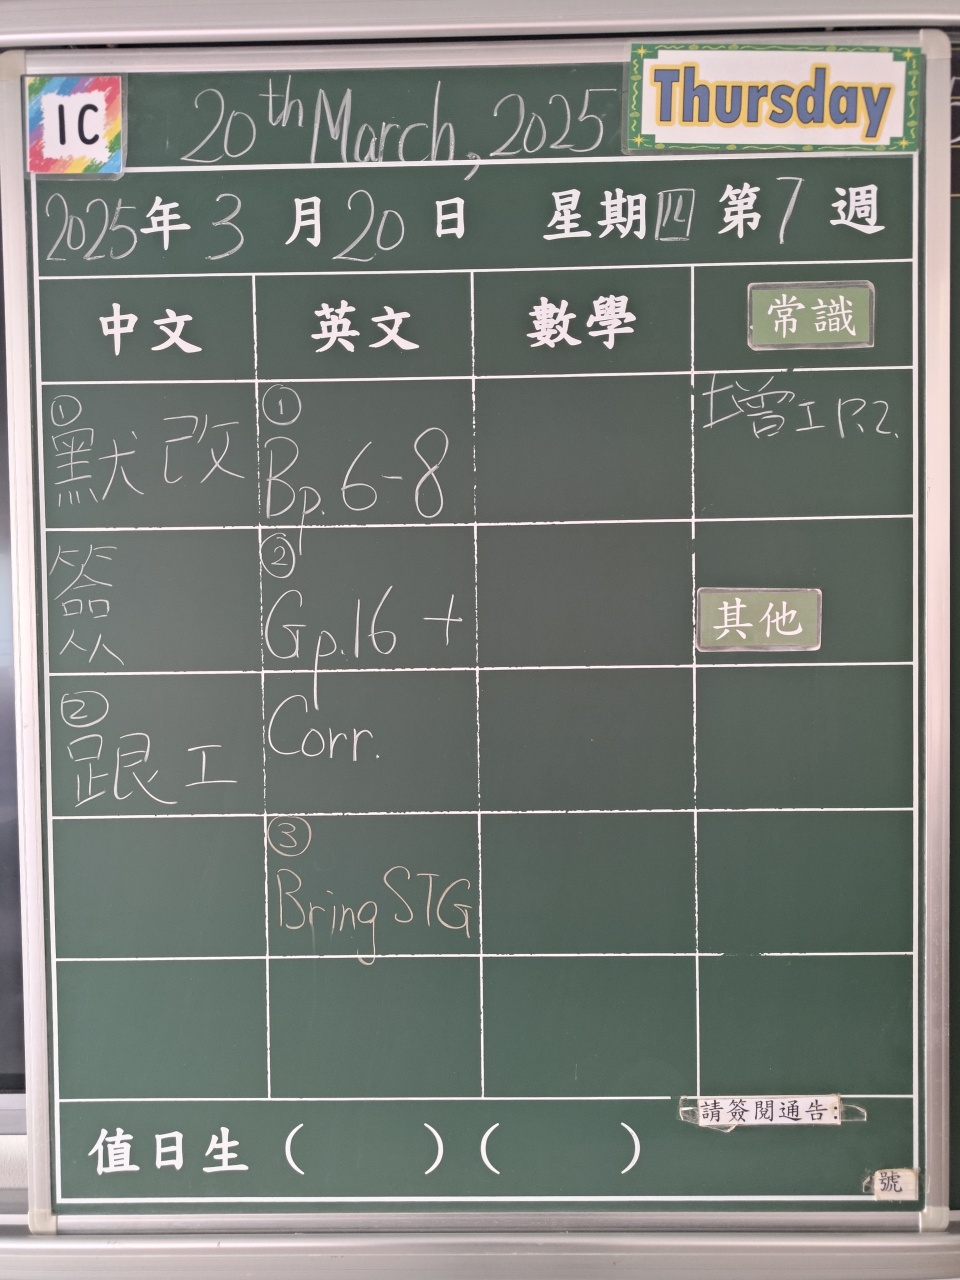 1C
20th March, 2025
Thursday
2025年3月20日 星期四 第7週
中文 英文 數學 常識
①
默改
簽
②
跟工
①
Bp. 6-8
②
Gp.16 +
Corr.
③
Bring STG
增工 P.2.
其他
請簽閱通告:
值日生 ( ) ( )
號